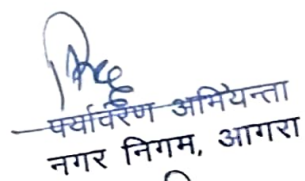 पर्यावरण अभियन्ता
नगर निगम, आगरा